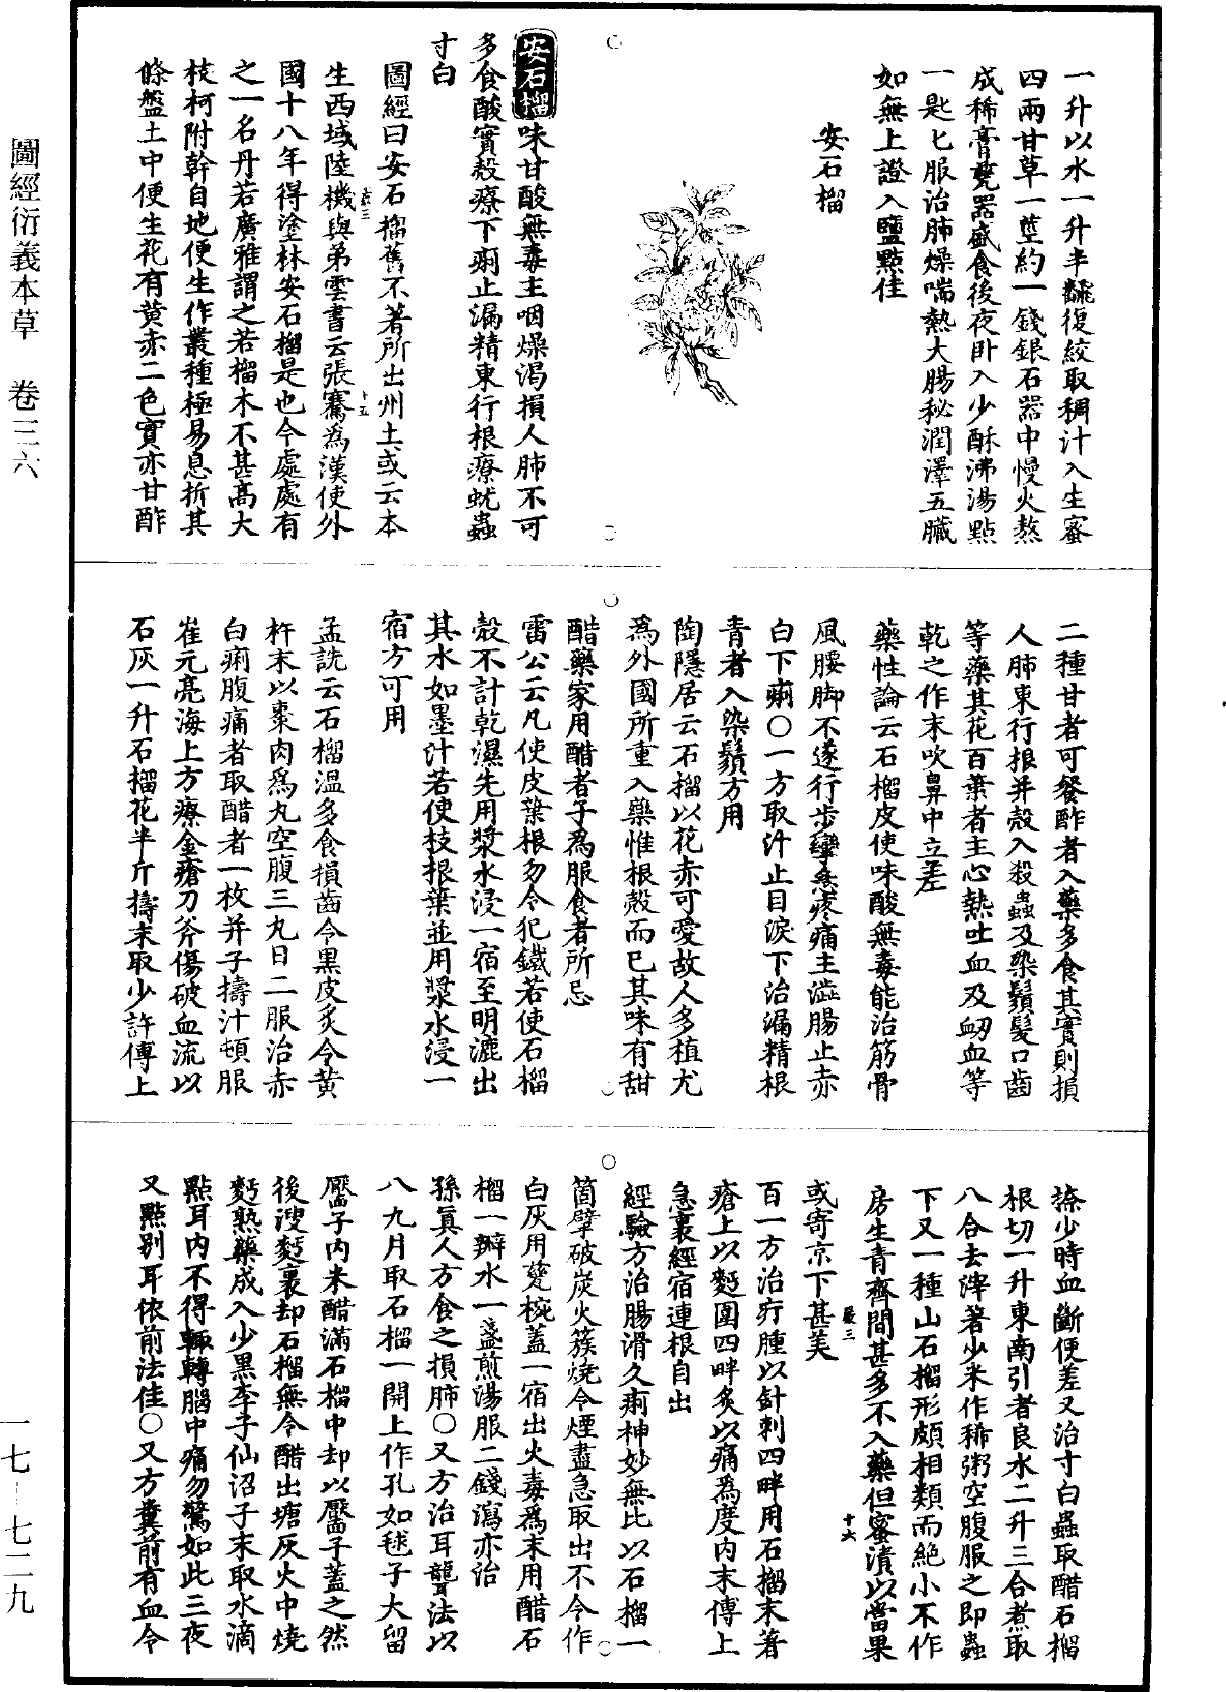 圖經衍義本草　卷三六
一七—七二九
一升以水一升半飜復絞取稠汁入生蜜
四兩甘草一莖約一錢銀石器中慢火熬
成稀膏甆器盛食後夜臥入少酥沸湯點
一匙匕服治肺燥喘熱大腸秘潤澤五臟
如無上證入鹽點佳
安石榴
安石榴味甘酸無毒主咽燥渴損人肺不可
多食酸實殼療下痢止漏精東行根療蚘蟲
寸白
圖經曰安石榴舊不著所出州土或云本
生西域陸機與弟雲書云張騫爲漢使外
國十八年得塗林安石榴是也今處處有
之一名丹若廣雅謂之若榴木不甚高大
枝柯附幹自地便生作叢種極易息折其
條盤土中便生花有黃赤二色實亦甘酢
二種甘者可餐酢者入藥多食其實則損
人肺東行根并殼入殺蟲及染鬚髮口齒
等藥其花百葉者主心熱吐血及衂血等
乾之作末吹鼻中立差
藥性論云石榴皮使味酸無毒能治筋骨
風腰脚不遂行步攣急疼痛主澁腸止赤
白下痢○一方取汁止目淚下治漏精根
青者入染鬚方用
陶隱居云石榴以花赤可愛故人多植尤
爲外國所重入藥惟根殼而已其味有甜
醋藥家用醋者子爲服食者所忌
雷公云凡使皮葉根勿令犯鐵若使石榴
殼不計乾濕先用漿水浸一宿至明漉出
其水如墨汁若使枝根葉並用漿水浸一
宿方可用
孟詵云石榴溫多食損齒令黑皮炙令黃
杵末以棗肉爲丸空腹三丸日二服治赤
白痢腹痛者取醋者一枚并子擣汁頓服
崔元亮海上方療金瘡刀斧傷破血流以
石灰一升石榴花半斤擣末取少許傅上
捺少時血斷便差又治寸白蟲取醋石榴
根切一升東南引者良水二升三合煮取
八合去滓著少米作稀粥空腹服之即蟲
下又一種山石榴形頗相類而絶小不作
房生青齊間甚多不入藥但蜜漬以當果
或寄京下甚美
百一方治疔腫以針刺四畔用石榴末著
瘡上以麪圍四畔炙以痛爲度內末傅上
急裹經宿連根自出
經驗方治腸滑久痢神妙無比以石榴一
箇擘破炭火簇燒令煙盡急取出不令作
白灰用甆椀蓋一宿出火毒爲末用醋石
榴一瓣水一盞煎湯服二錢瀉亦治
孫眞人方食之損肺○又方治耳聾法以
八九月取石榴一開上作孔如毬子大留
靨子內米醋滿石榴中却以靨子蓋之然
後溲麪裹却石榴無令醋出塘灰火中燒
麪熟藥成入少黑李子仙沼子末取水滴
點耳內不得輒轉腦中痛勿驚如此三夜
又點別耳依前法佳○又方糞前有血令